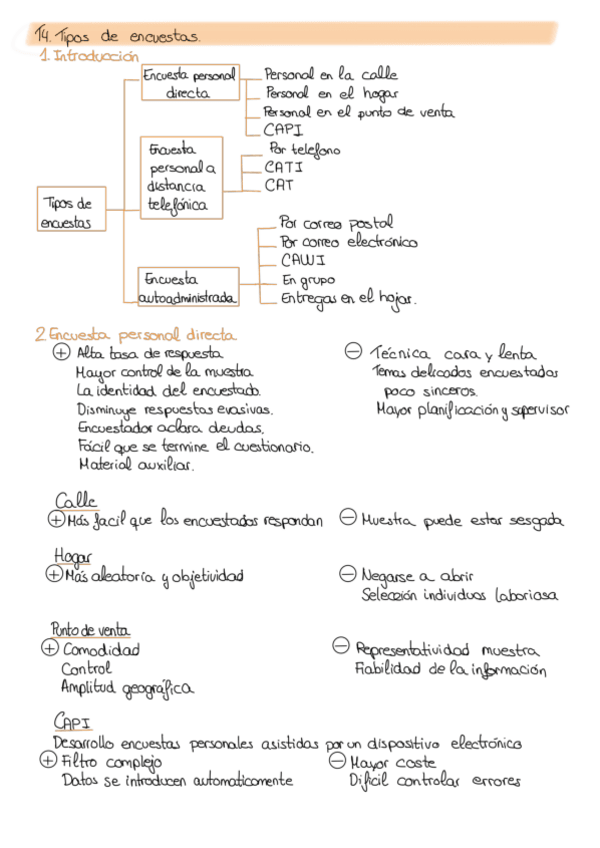 T4. Tipos de encuestas.
1. Introducción
Encuesta personal directa
Personal en la calle
Personal en el hogar
Personal en el punto de venta
CAPI
Encuesta personal a distancia telefónica
Por telefono
CATI
CAT
Tipos de encuestas
Por correo postal
Por correo electrónico
CAWI
Encuesta autoadministrada
En grupo
Entregas en el hojar.
2 Encuesta personal directa
+ Alta tasa de respuesta
Mayor control de la muestra
La identidad del encuestado.
Disminuye respuestas evasivas.
Encuestador aclara deudas.
Fácil que se termine el cuestionario.
Material auxiliar.
- Técnica cara y lenta
Temas delicados encuestados
poco sinceros.
Mayor planificación y supervisor
Calle
+ Más facil que los encuestados respondan
- Muestra puede estar sesgada
Hogar
+ Más aleatoría y objetividad
- Negarse a abrir
Selección individuos laboriosa
Punto de venta
+ Comodidad
Control
Amplitud geográfica
- Representatividad muestra
Fiabilidad de la información
CAPI
Desarrollo encuestas personales asistidas por un dispositivo electrónico
+ Filtro complejo
Datos se introducen automaticamente
- Mayor coste
Dificil controlar errores